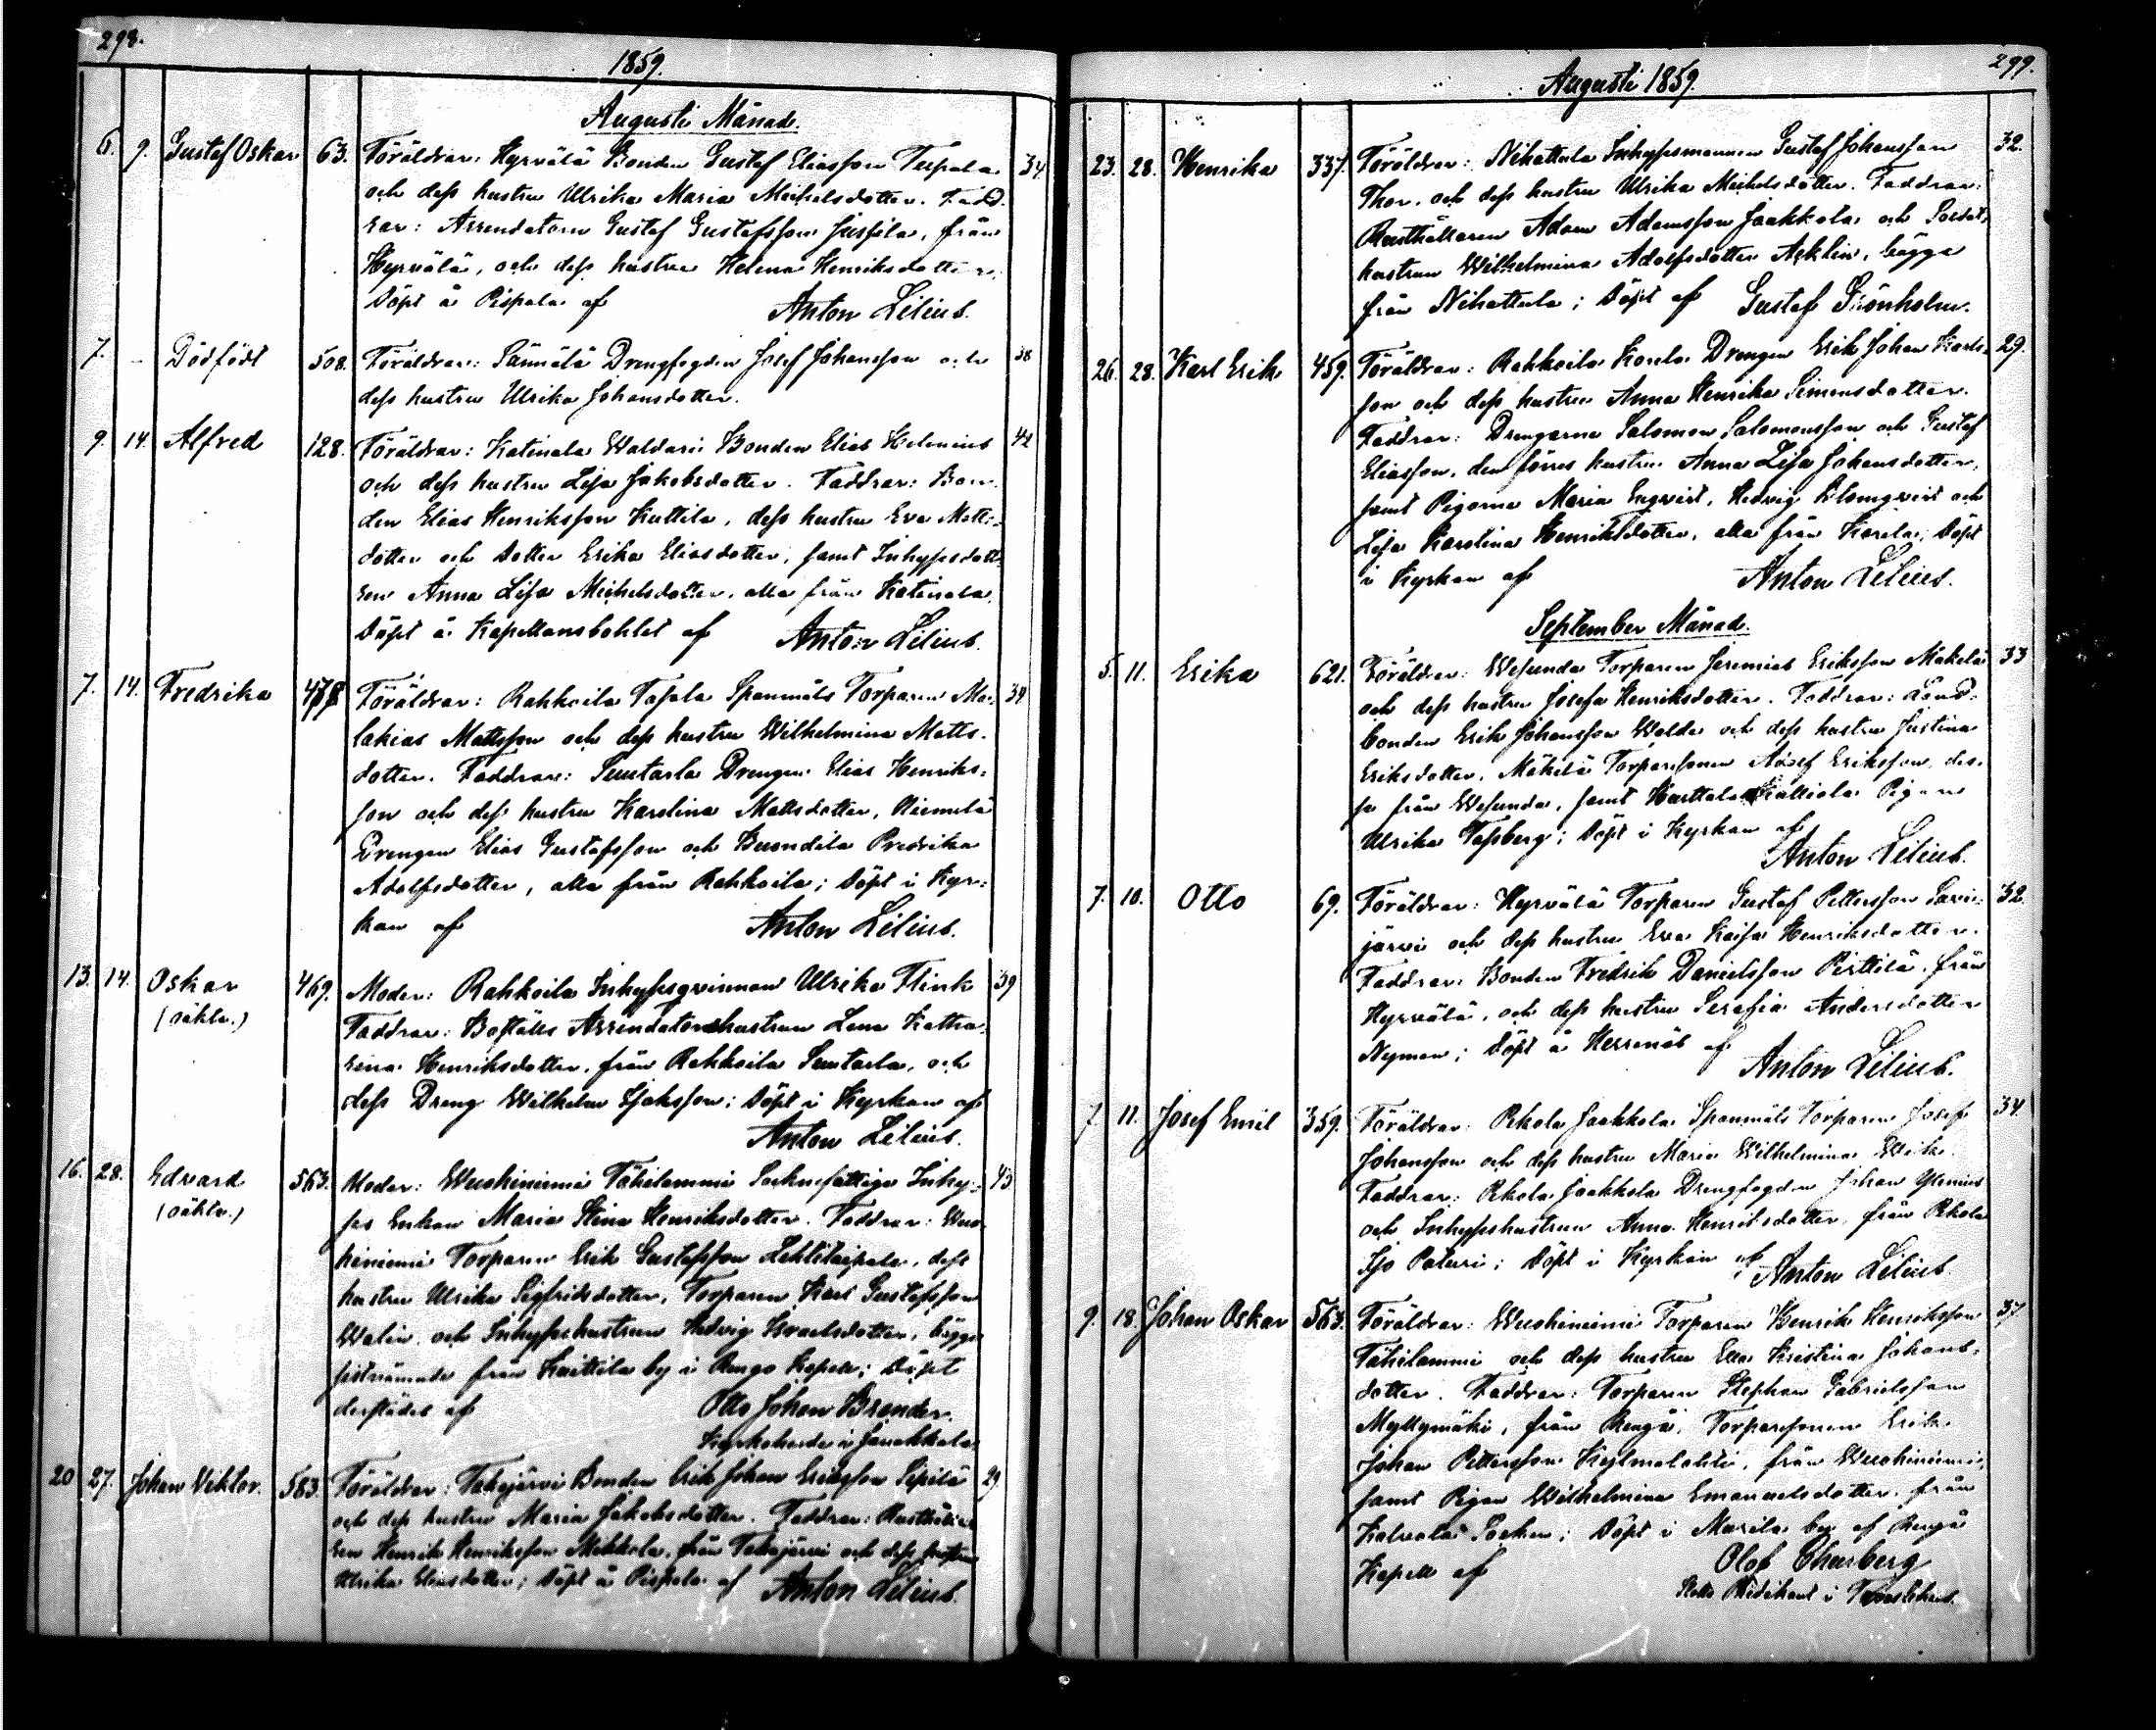 298.
1859.
Augusti Månad.
6. 9. Gustaf Oskar 63. Föräldrar: Hyrvälä Bonden Gustaf Eliasson Teipala 34.
och dess hustru Ulrika Maria Michelsdotter. Fadd-
rar: Arrendatorn Gustaf Gustafsson Jussila, från
Hyrvälä, och dess hustru Helena Henriksdotter,
döpt å Pispala af Anton Lilius.
7. – Dödfödt 508. Föräldrar: Sännälä Drengfogden Josef Johansson och 38
dess hustru Ulrika Johansdotter.
9. 14. Alfred 128. Föräldrar: Katinala Waldari Bonden Elias Helenius 42
och dess hustru Lisa Jakobsdotter. Faddrar: Bon-
den Elias Henriksson Kuttila, dess hustru Eva Matts-
dotter och dotter Erika Eliasdotter, samt Inhysesdott-
ren Anna Lisa Michelsdotter, alla från Katinala,
döpt å Kapellansbohlet af Anton Lilius.
7. 14. Fredrika 478 Föräldrar: Rahkoila Tasala Spannmåls Torparen Ma- 34
lakias Mattsson och dess hustru Wilhelmina Matts-
dotter. Faddrar: Suntarla Drengen Elias Henriks-
son och dess hustru Karolina Mattsdotter, Niemelä
Drengen Elias Gustafsson och Fredrika
Adolfsdotter, alla från Rahkoila; döpt i Kyr-
kan af Anton Lilius.
13. 14. Oskar 469. Moder: Rahkoila Inhysesqvinnan Ulrika Flink 39
(oäkta.) Faddrar: Boställs Arrendatorshustrun Lena Katha-
rina Henriksdotter, från Rahkoila Suntarla, och
dess Dreng Wilhelm Isaksson; döpt i Kyrkan af
Anton Lilius.
16. 28. Edvard 563. Moder: Wuohiniemi Tähilammi Socknefattiga Inhy- 43
(oäkta.) ses Enkan Maria Stina Henriksdotter. Faddrar: Wuo-
hiniemi Torparen Erik Gustafsson, dess
hustru Ulrika Sigfridsdotter, Torparen Karl Gustafsson
Walin, och Inhyseshustrun Hedvig Israelsdotter, bägge
sistnämnde från Kaittila by i Rengo Kapell; döpt
derstädes af Otto Johan Brander.
Kyrkoherde i Janakkala
20 27. Johan Viktor. 583. Föräldrar: Takajärvi Bonden Erik Johan Eriksson Sipilä 29.
och dess hustru Maria Jakobsdotter. Faddrar: Rusthålla-
ren Henrik Henriksson Mikkola, från Takajärvi och dess hustru
Ulrika Eliasdotter; döpt å Pispala af Anton Lilius.
299.
Augusti 1859.
23. 28. Henrika 337. Föräldrar: Nihattula Inhysesmannen Gustaf Johansson 32.
Thor, och dess hustru Ulrika Michelsdotter. Faddrar:
Rusthållaren Adam Adamsson Jaakkola och Soldat-
hustrun Wilhelmina Adolfsdotter, bägge
från Nihattula; döpt af Gustaf Grönholm.
26. 28. Karl Erik 459. Föräldrar: Rahkoila Karela Drengen Erik Johan Karls- 29.
son och dess hustru Anna Henrika Simonsdotter.
Faddrar: Drengarne Salomon Salomonsson och Gustaf
Eliasson, den förres hustru Anna Lisa Johansdotter,
samt Pigorna Maria Engqvist, Hedvig Blomqvist och
Lisa Karolina Henriksdotter, alla från Karela; döpt
i Kyrkan af Anton Lilius.
September Månad.
5. 11. Erika 621. Föräldrar: Wesunda Torparen Jeremias Eriksson Mäkelä 33
och dess hustru Josefa Henriksdotter. Faddrar: Land-
bonden Erik Johansson Walda och dess hustru Justina
Eriksdotter, Mäkelä Torparesonen Adolf Eriksson, des-
se från Wesunda, samt Hattala Pigan
Ulrika Tassberg; döpt i Kyrkan af
Anton Lilius.
7. 10. Otto 69. Föräldrar: Hyrvälä Torparen Gustaf Pettersson Savi- 32.
järvi och dess hustru Eva Kaisa Henriksdotter.
Faddrar: Bonden Fredrik Danielsson Pirttilä, från
Hyrvälä, och dess hustru Serafia Andersdotter
Nyman; döpt å Herrnäs af
Anton Lilius.
7. 11. Josef Emil 359. Föräldrar: Pekola Jaakkola Spannmåls Torparen Josef 34.
Johansson och dess hustru Maria Wilhelmina
Faddrar: Pekola Jaakkola Drengfogden Johan Ylenius
och Inhyseshustrun Anna Henriksdotter, från Pekola
Iso Paturi; döpt i Kyrkan af Anton Lilius.
9. 18. Johan Oskar 563. Föräldrar: Wuohiniemi Torparen Henrik Henriksson 37
Tähilammi och dess hustru Eva Kristina Johans-
dotter. Faddrar: Torparen Stephan Gabrielsson
Myllymäki, från Rengå, Torparesonen Erik
Johan Pettersson Kylmalahti, från Wuohiniemi,
samt Pigan Wilhelmina Emanuelsdotter, från
Kalvola Socken; döpt i Muurila by af Rengå
Kapell af Olof Churberg
Slotts Predikant i Tavastehus.